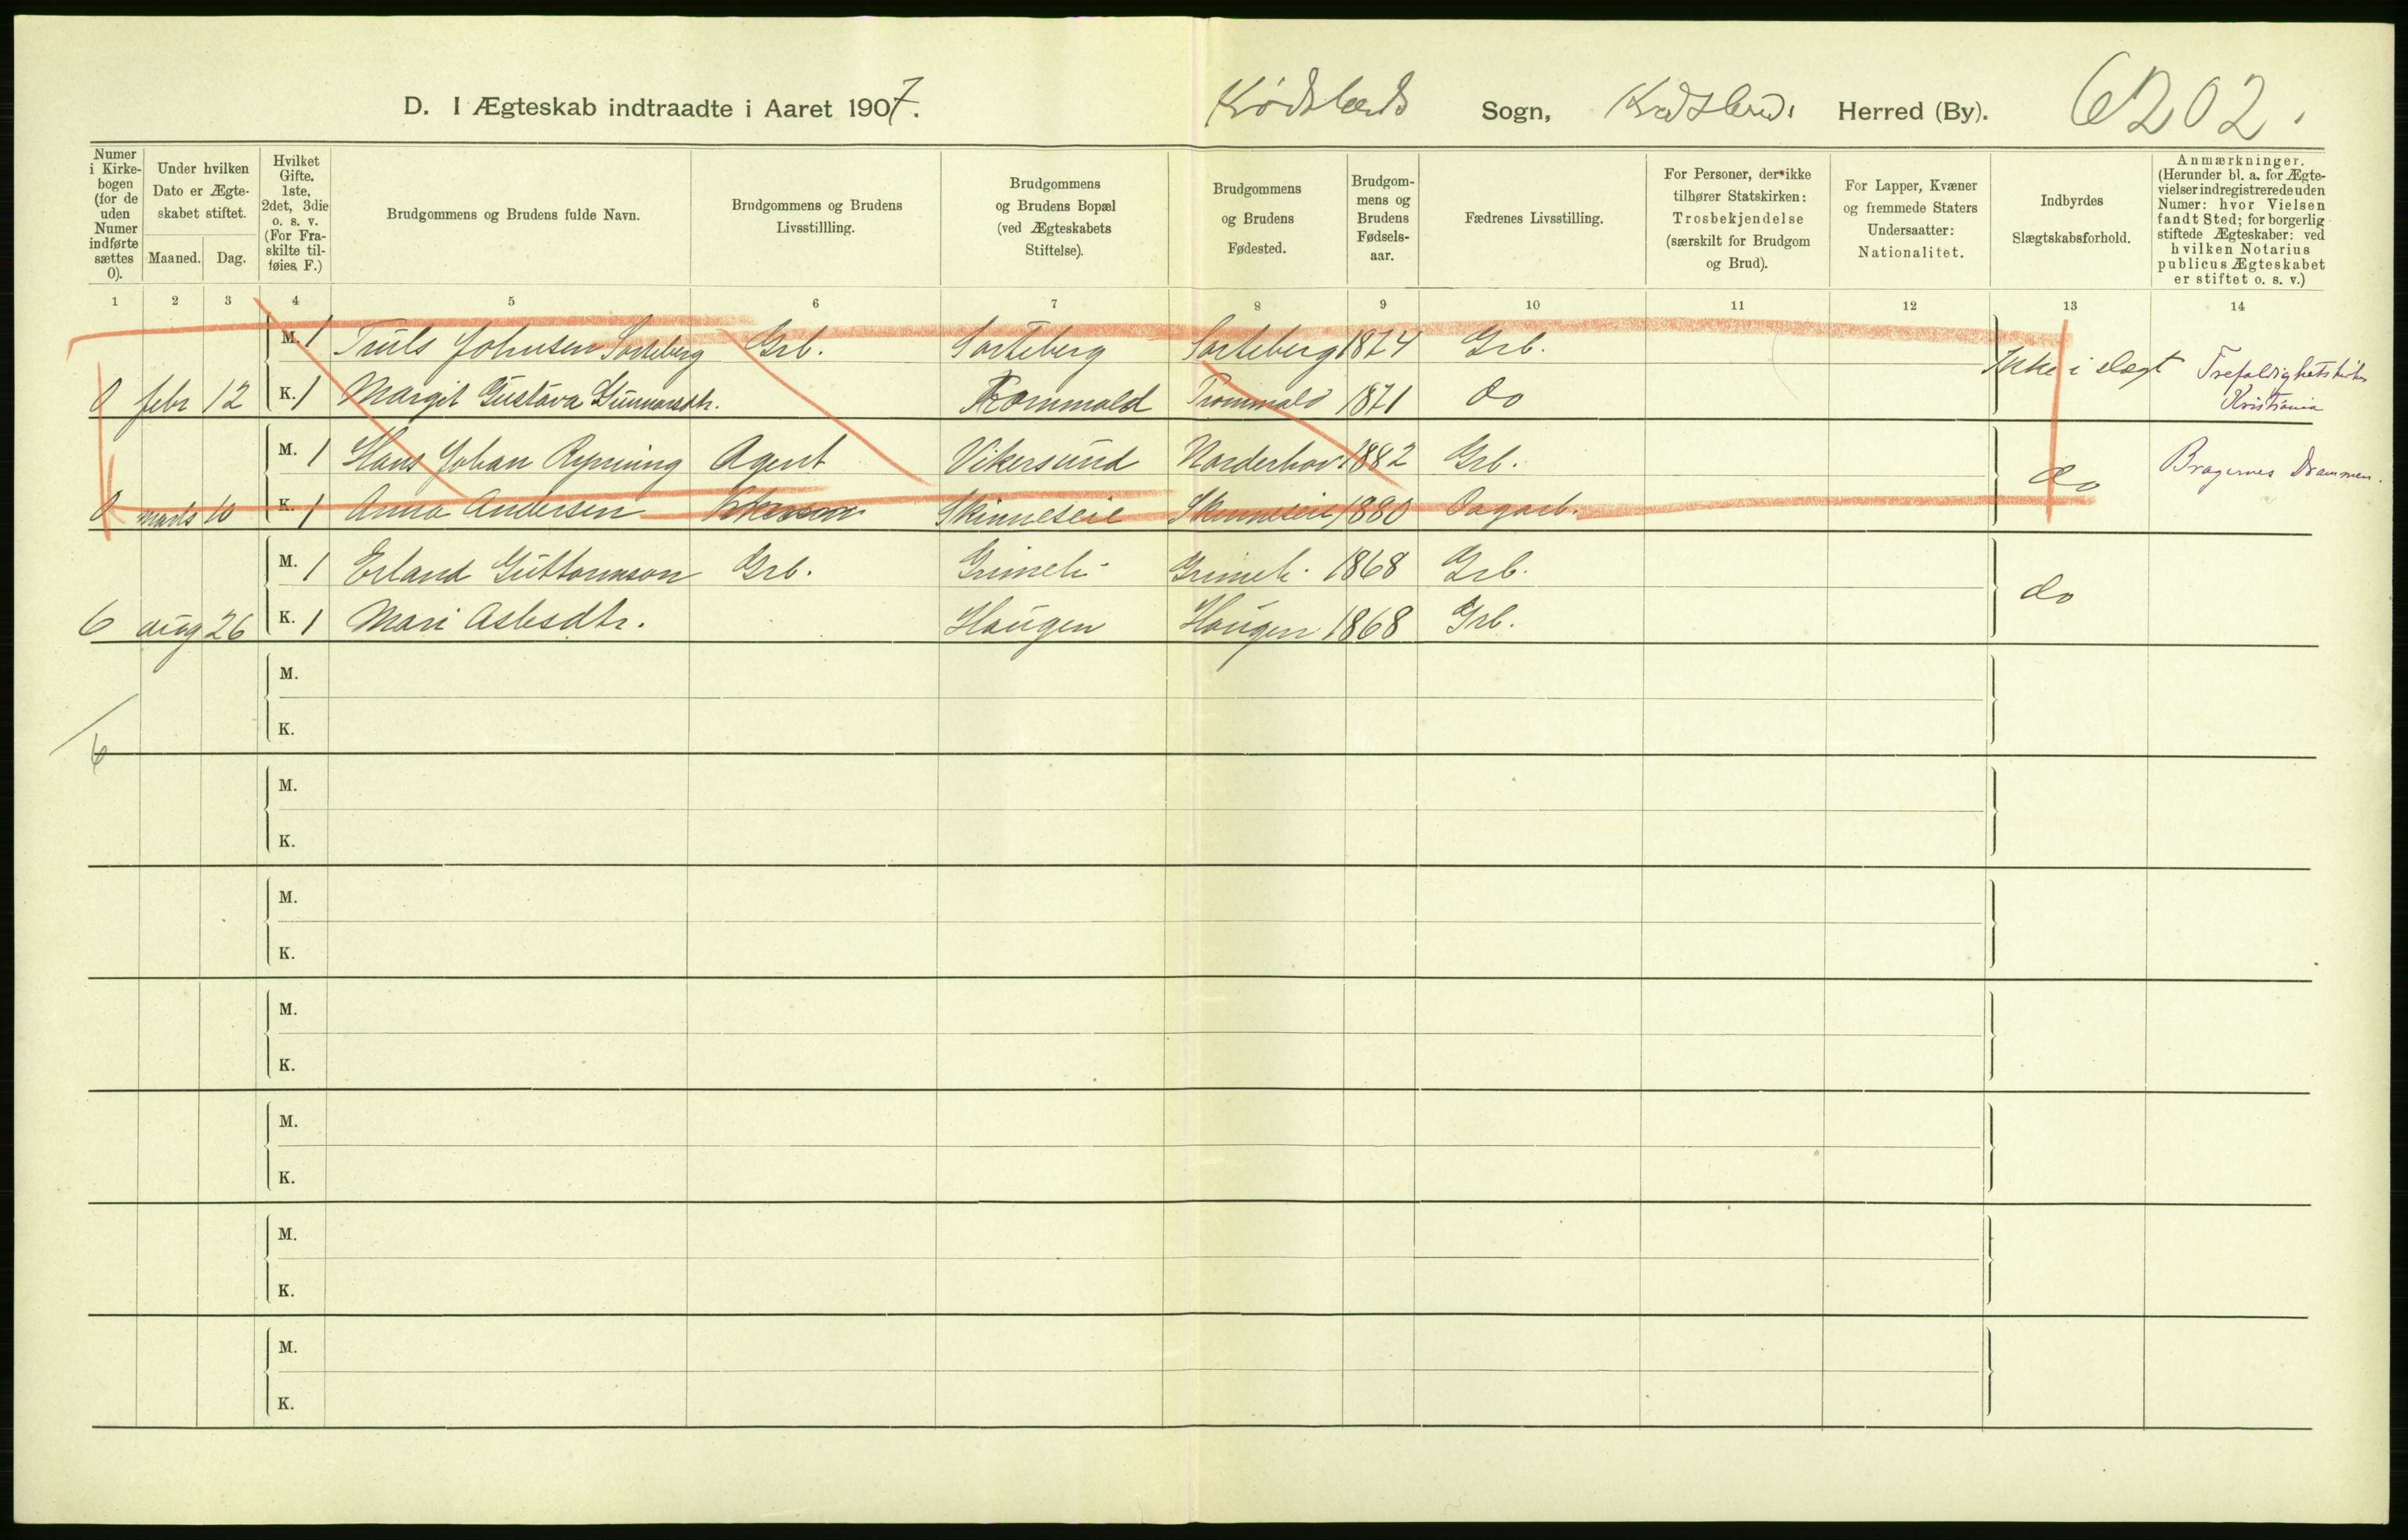 D. I Ægteskab indtraadte i Aaret 1907. Sogn, Herred (By). 6202.
Numer i Kirkebogen (for de uden Numer indførte sættes 0).
Under hvilken Dato er Ægteskabet stiftet.
Maaned. Dag.
Hvilket Gifte. 1ste, 2det, 3die o. s. v. (For Fraskilte tilføies F.)
Brudgommens og Brudens fulde Navn.
Brudgommens og Brudens Livsstillling.
Brudgommens og Brudens Bopæl (ved Ægteskabets Stiftelse).
Brudgommens og Brudens Fødested.
Brudgommens og Brudens Fødselsaar.
Fædrenes Livsstilling.
For Personer, der ikke tilhører Statskirken: Trosbekjendelse (særskilt for Brudgom og Brud).
For Lapper, Kvæner og fremmede Staters Undersaatter: Nationalitet.
Indbyrdes Slægtskabsforhold.
Anmærkninger. (Herunder bl. a. for Ægtevielser indregistrerede uden Numer: hvor Vielsen fandt Sted; for borgerlig stiftede Ægteskaber: ved hvilken Notarius publicus Ægteskabet er stiftet o. s. v.)
1 2 3 4 5 6 7 8 9 10 11 12 13 14
M. 1 Truls Johnsen Sorteberg Grb. Sorteberg Sorteberg 1874 Grb. Ikke i slegt Trefoldighetskirken
0 febr 12 K. 1 Margit Gustava Gunnarsdtr. Trommald 1871 do Kristiania
M. 1 Hans Johan Rypning Agent Vikersund Norderhov 1882 Grb. do Bragernes Drammen.
0 marts 10 K. 1 Anna Andersen Skinneseie Skinneseie 1880 Dagarb.
M. 1 Erland Guttormson Grb. Grimeli Grimeli 1868 Grb. do
6 aug 26 K. 1 Mari Aslesdtr. Haugen Haugen 1868 Grb.
M.
K.
6
M.
K.
M.
K.
M.
K.
M.
K.
M.
K.
M.
K.